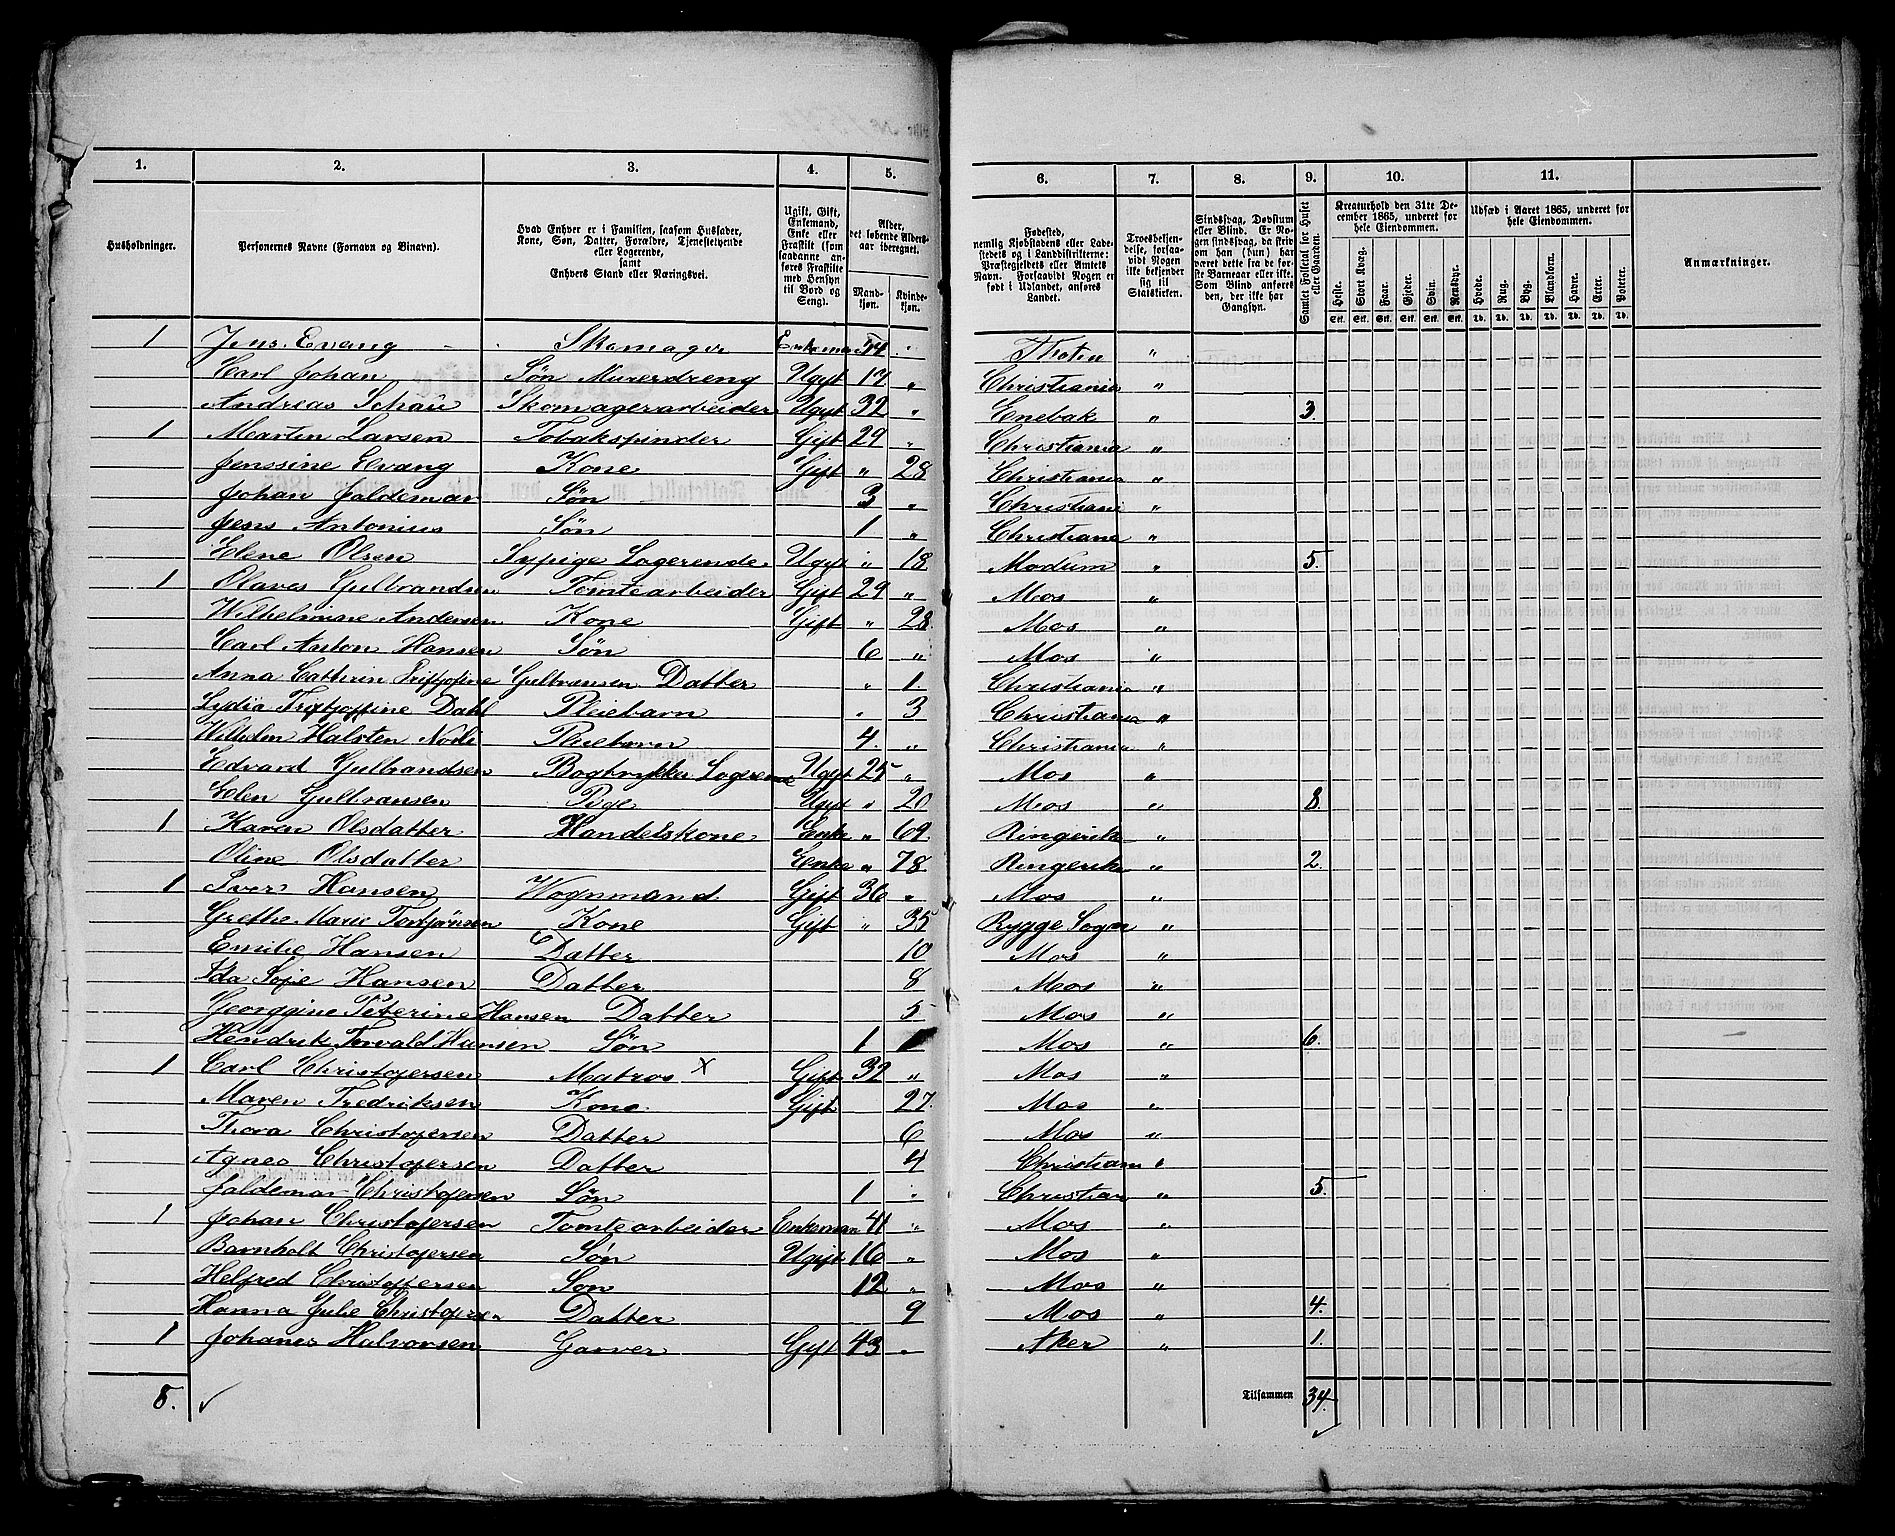 1. 2. 3. 4. 5. 6. 7. 8. 9. 10. 11.
Husholdninger.
Personernes Navne (Fornavn og Binavn).
Hvad Enhver er i Familien, saasom Husfader, Kone, Søn, Datter, Forældre, Tjenestetyende eller Logerende, samt Enhvers Stand eller Næringsvei.
Ugift, Gift, Enkemand, Enke eller Fraskilt (som saadanne anføres Fraskilte med Hensyn til Bord og Seng).
Alder, det løbende Aldersaar iberegnet.
Mandkjøn. Kvindekjøn.
Fødested, nemlig Kjøbstadens eller Ladestedets og i Landdistrikterne: Præstegjeldets eller Amtets Navn. Forsaavidt Nogen er født i Udlandet, anføres Landet.
Troesbekjendelse, forsaavidt Nogen ikke bekjender sig til Statskirken.
Sindssvag, Døvstum eller Blind. Er Nogen sindssvag, da skrives om han (hun) har været dette fra de første Barneaar eller ikke. Som Blind anføres den, der ikke har Gangsyn.
Samlet Folketal for Huset eller Gaarden.
Kreaturhold den 31te December 1865, underet for hele Eiendommen.
Heste. Stort Kvæg. Faar. Gjeder. Svin. Rensdyr.
Stk. Stk. Stk. Stk. Stk. Stk.
Udsæd i Aaret 1865, underet for hele Eiendommen.
Hvede. Rug. Byg. Blandkorn. Havre. Erter. Poteter.
Td. Td. Td. Td. Td. Td. Td.
Anmærkninger.
1 Jens Evang Skomager Enkeman 54 " Thoten "
Carl Johan Søn Murerdreng Ugift 17 " Christiania "
Andreas Schau Skomagerarbeider Ugift 32 " Enebak " 3.
1 Martin Larsen Tobakspinder Gift 29 " Christiania "
Jenssine Evang Kone Gift " 28 Christiania "
Johan Jaldemar Søn 3 " Christiani "
Jens Antonius Søn 1 " Christiana "
Elene Olsen Sypige Logerende Ugift " 18 Modum " 5.
1 Olaves Gulbrandsen Tomtearbeider Gift 29 " Mos "
Wilhelmine Andersen Kone Gift " 28 Mos "
Carl Anton Hansen Søn 6 " Mos "
Anna Cathrin Gulbransen Datter " 1. Christiania "
Lydia Dahl Pleiebarn " 3 Christiania "
Halsten Pleiebarn 4. " Christiania "
Edvard Gulbrandsen Bogtrykker Logerende Ugift 25 " Mos "
Elen Gulbransen Pige Ugift " 20 Mos " 8.
1 Karen Olsdatter Handelskone Enke " 69. Ringerike "
Oline Olsdatter Eenke " 78. Ringerike " 2.
1 Iver Hansen Wognmand Gift 36 " Mos "
Grethe Marie Torbjørnsen Kone Gift " 35 Rygge Sogn "
Emilie Hansen Datter 10 Mos "
Ida Sofie Hansen Datter 8 Mos "
Georggine Peterine Hansen Datter 5 Mos "
Hendrik Torvald Hansen Søn 1 Mos " 6.
1 Carl Christofersen Matros x Gift 32 " Mos "
Maren Fredriksen Kone Gift 27. Mos "
Thora Christofersen Datter 6 Mos "
Agnes Christofersen Datter 4 Christiania "
Jaldemar Christofersen Søn 1 " Christian " 5.
1 Johan Christofersen Tomtearbeider Enkeman 41 " Mos "
Barnholt Christofersen Søn Ugift 16 " Mos "
Helfred Christoffersen Søn 12 " Mos "
Hanna Julie Christofersen Datter 9 Mos " 4.
1 Johanes Halvorsen Garver Gift 43 " Aker " 1.
8. Tilsammen 34.